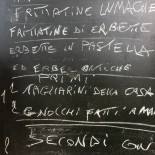 FRITTATINE IN MAGHE
FRITTATINE DI ERBETTE
ERBETTE IN PASTELLA
ED ERBE ANTICHE
PRIMI
TAGLIARINI DELLA CASA
GNOCCHI FATTI A MA
SECONDI CON